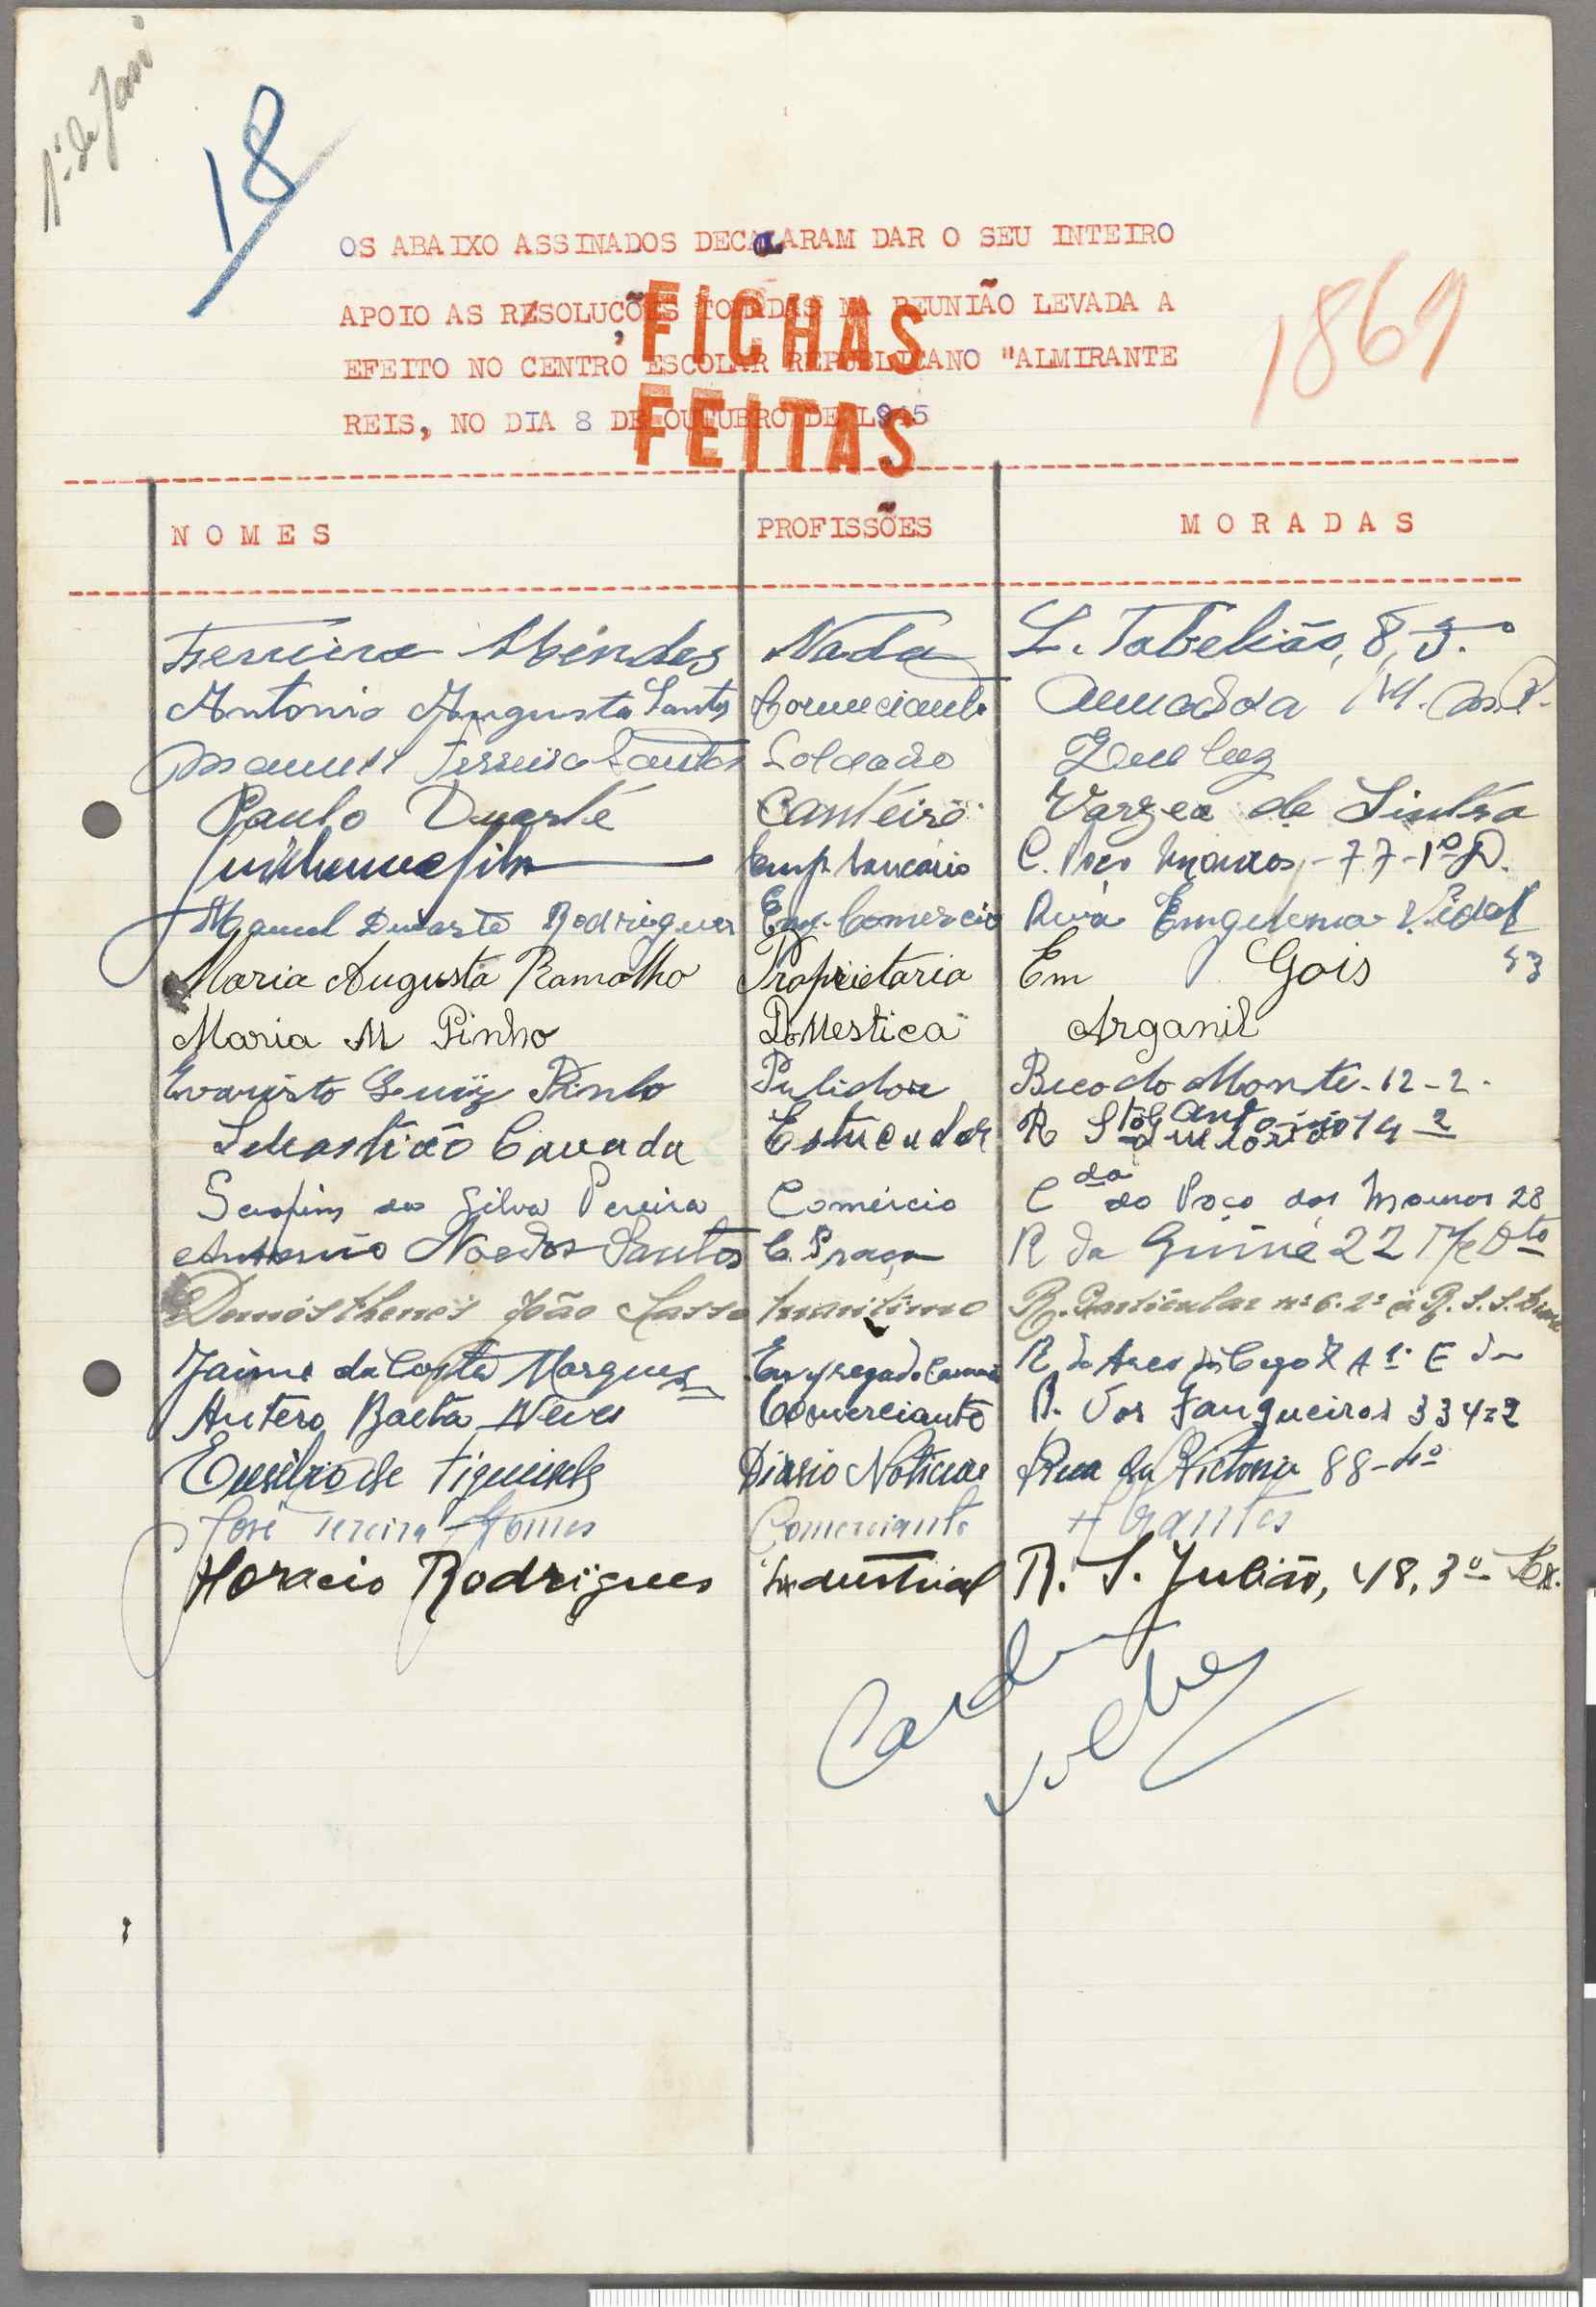 1º de Jan
18
OS ABAIXO ASSINADOS DECALARAM DAR O SEU INTEIRO
APOIO AS RESOLUÇÕES TOMADAS NA REUNIÃO LEVADA A
EFEITO NO CENTRO ESCOLAR REPUBLICANO "ALMIRANTE
REIS, NO DIA 8 DE OUTUBRO DE L945
FICHAS
FEITAS
1869
NOMES PROFISSÕES MORADAS
Ferreira Mendes Nada L. Tabelião, 8, 3.º
Antonio Augusto Santos Comerciante Amadora
Manuel Ferreira Santos Soldado Queluz
Paulo Duarte Canteiro Varzea de Sintra
Guilherme Silva Emp. bancário C. Poço Mouros, - 77 - 1º D.
Manuel Duarte Rodrigues Emp. Comercio Rua Emgelema Vidal 53
Maria Augusta Ramalho Proprietaria Em Gois
Maria M Pinho Domestica Arganil
Evaristo Luiz Pinto Pulidor Beco do Monte - 12 - 2 -
Sebastião Cavada Estucador R Stº Antonio 14 2
Serafim da Silva Pereira Comércio Cda do Poço dos Mouros 28
Antonio Noe dos Santos C. Praça R da Guiné 22 Dto
Demósthenes João Lasso Maritimo R. Particular nº 6. 2º à R. S. S.
Jaime da Costa Marques Empregado R do Arco do Cego A 1º E
Antero Baeta Neves Comerciante R. dos Fanqueiros 334=2
Eusébio de Figueiredo Diario Noticias Rua da Victoria 88-4º
José Pereira Gomes Comerciante Abrantes
Horacio Rodrigues Industrial R. S. Julião, 48, 3º Lx.